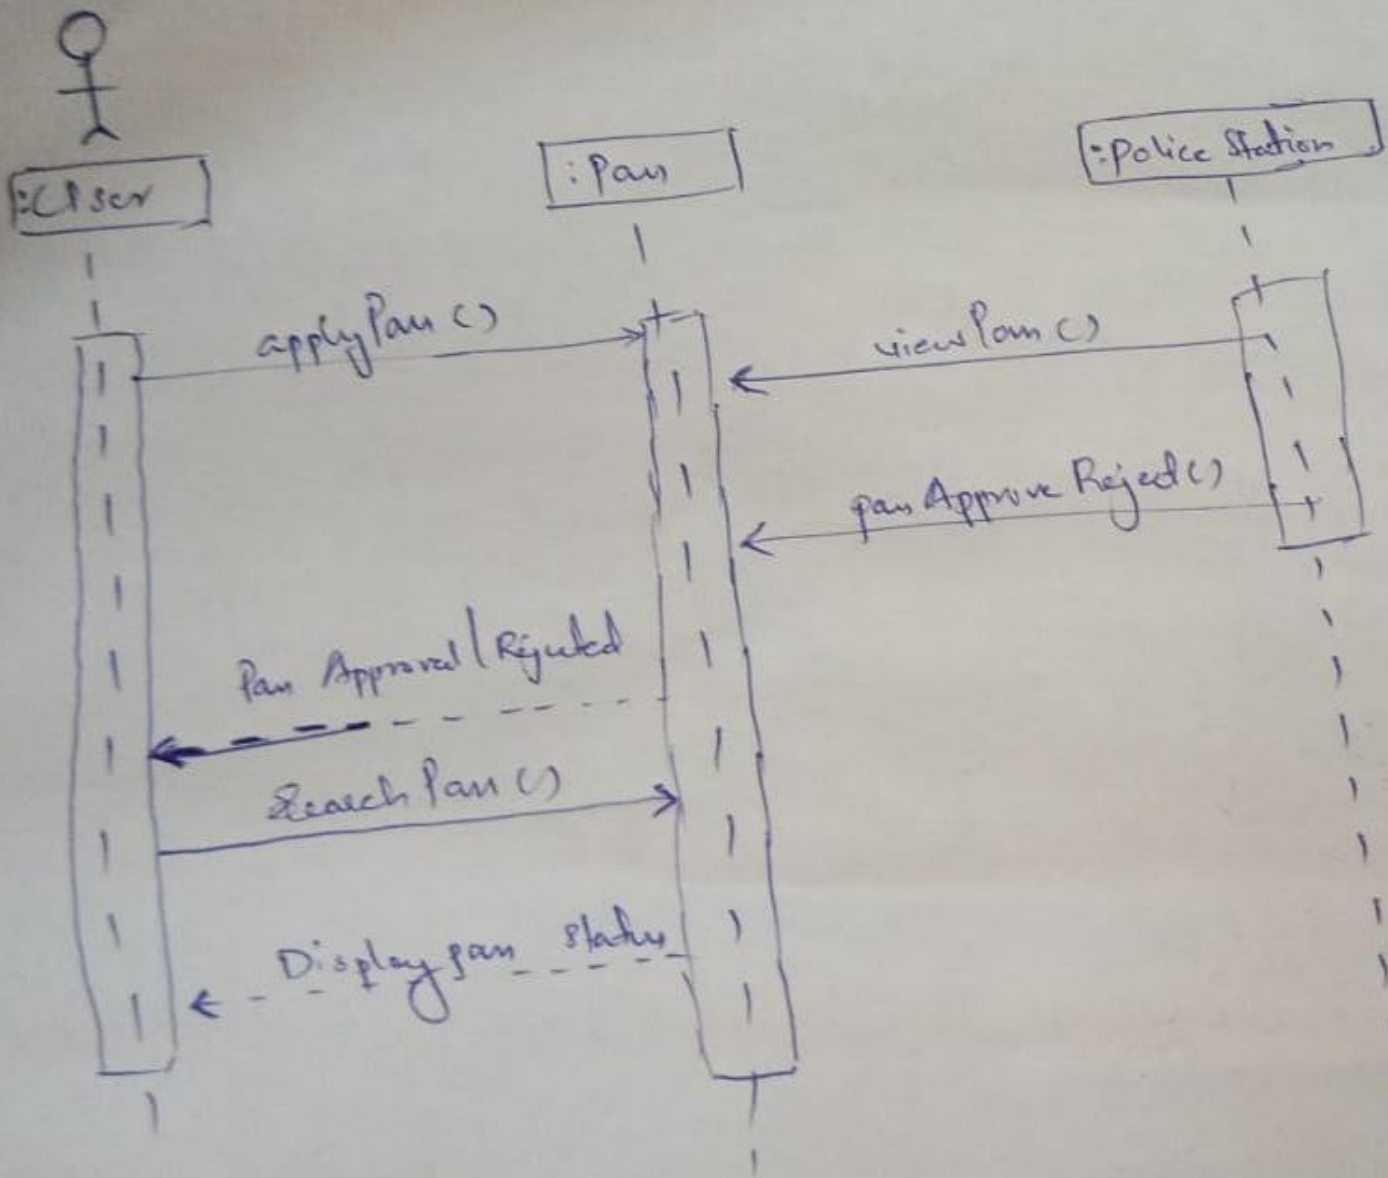 :User
:Pan
:Police Station
applyPan ()
viewPan ()
pan Approve Reject ()
Pan Approval / Rejected
Search Pan ()
Display pan status